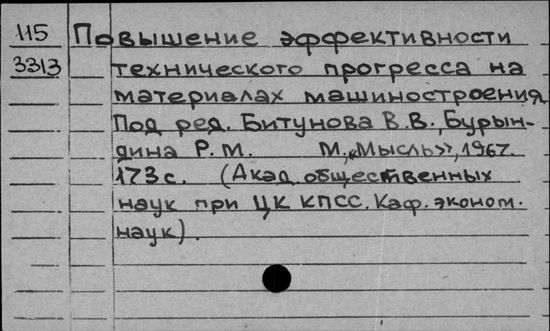 115 Повышение эффективности
3313 технического прогресса на
материалах машиностроения
Под ред. Битунова В.В., Бурын-
дина Р.М. М, «Мысль», 1967.
173 с. (Акад. общественных
наук при ЦК КПСС. Каф. эконом.
наук).